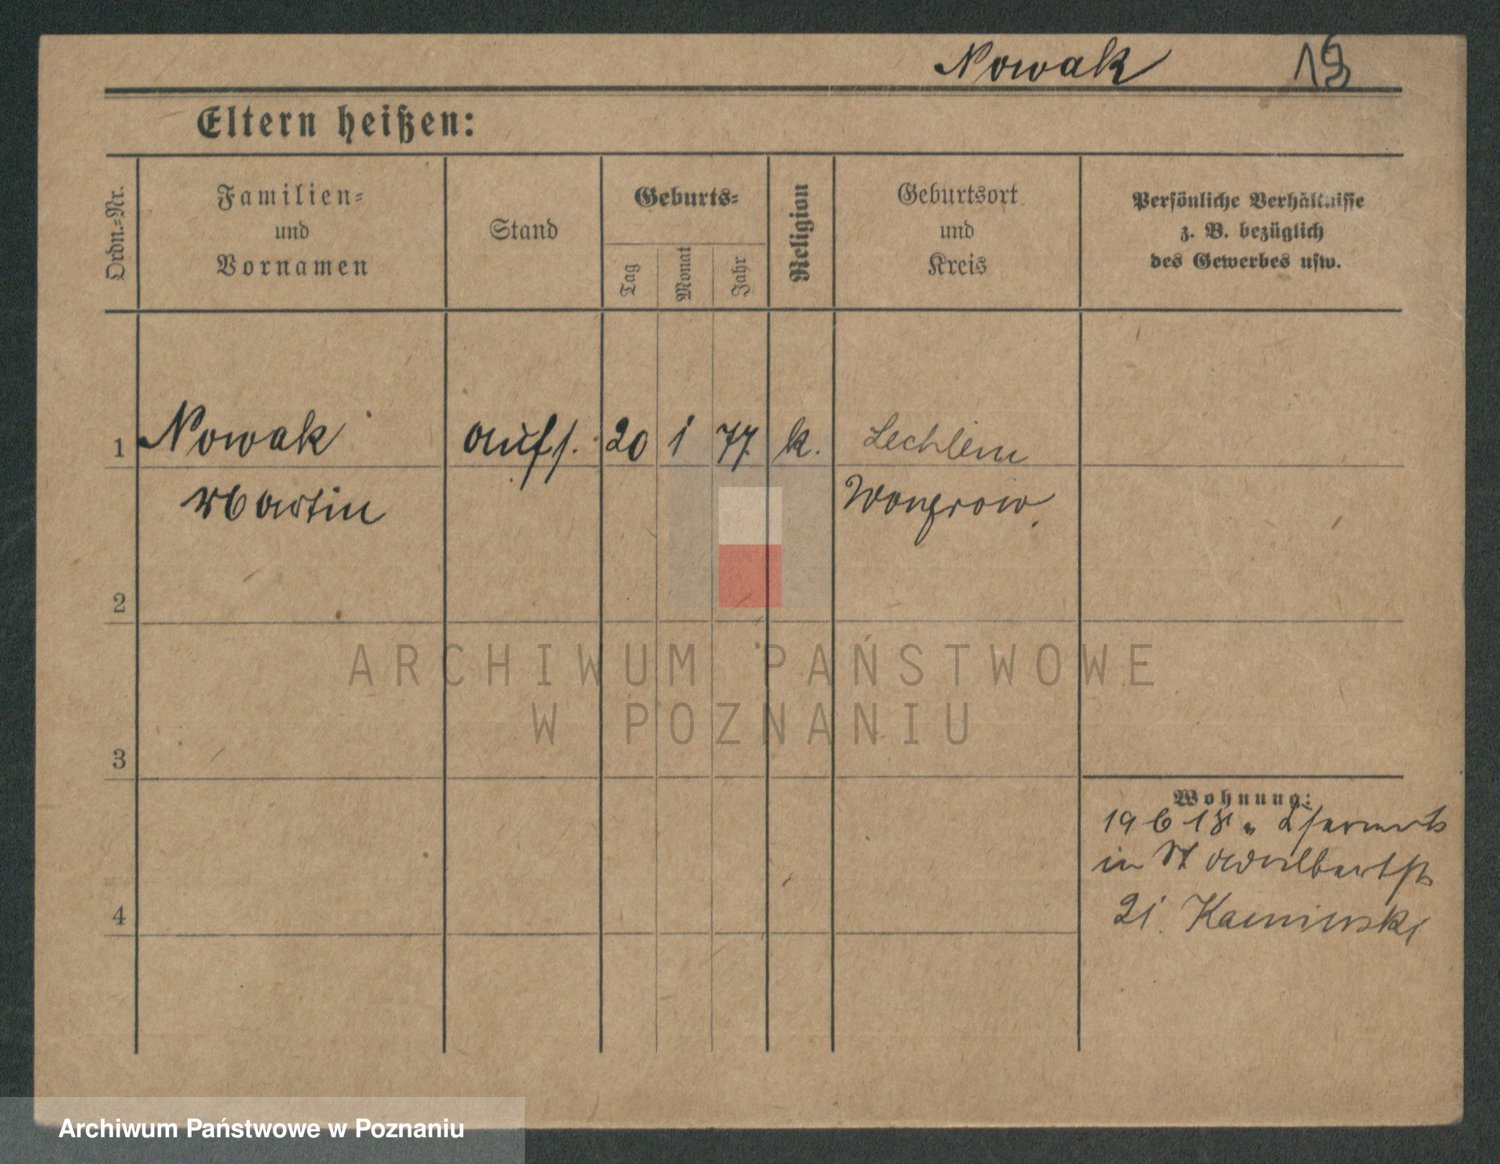 Nowak
Eltern heißen:
Ordn.-Nr.
Familien-
und
Vornamen
Stand
Geburts-
Tag
Monat
Jahr
Religion
Geburtsort
und
Kreis
Persönliche Verhältnisse
z. B. bezüglich
des Gewerbes usw.
1 Nowak aufs. 20 1 77. k. Lechlin
Martin Wongrow.
2
ARCHIWUM PAŃSTWOWE
W POZNANIU
3
Wohnung:
19 6 18
in St Adalbertstr
21. Kaminski
4
Archiwum Państwowe w Poznaniu